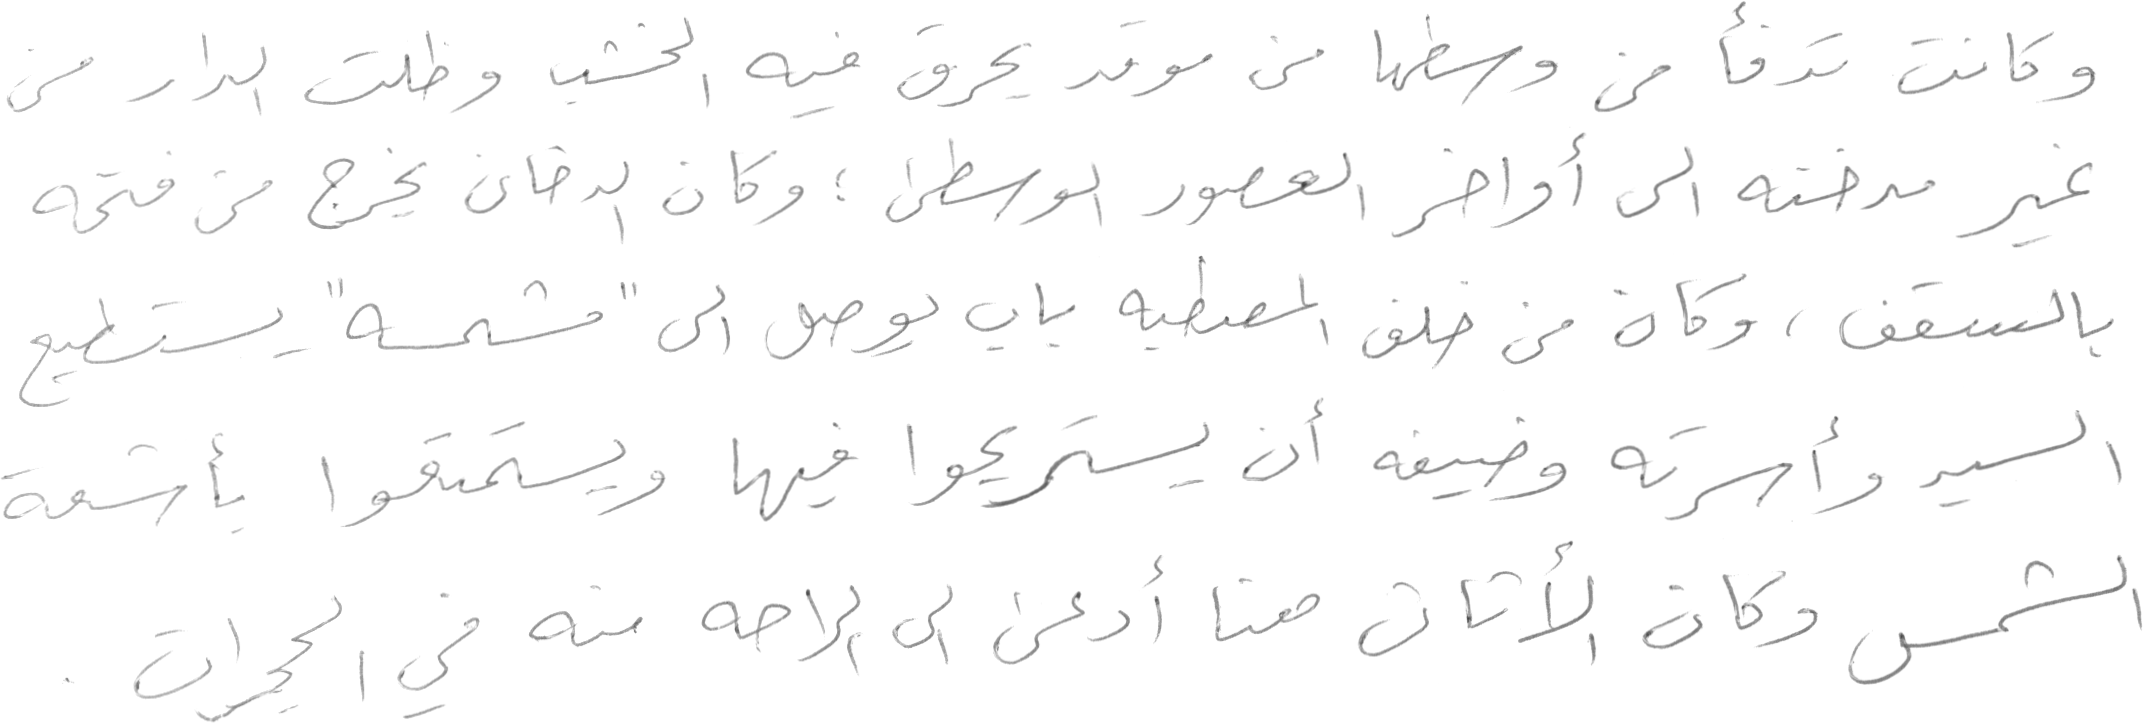 وكانت تدفأ من وسطها من موقد يحرق فيه الخشب وظلت الدار من
غير مدخنه الى أواخر العصور الوسطى؛ وكان الدخان يخرج من فتحه
بالسقف، وكان من خلف المصطبه باب يوصل الى "مشمسه" يستطيع
السيد وأسرته وضيفه أن يستريحوا فيها ويستمتعوا بأشعة
الشمس وكان الأثاث هنا أدعى الى الراحه منه في الحجرات .